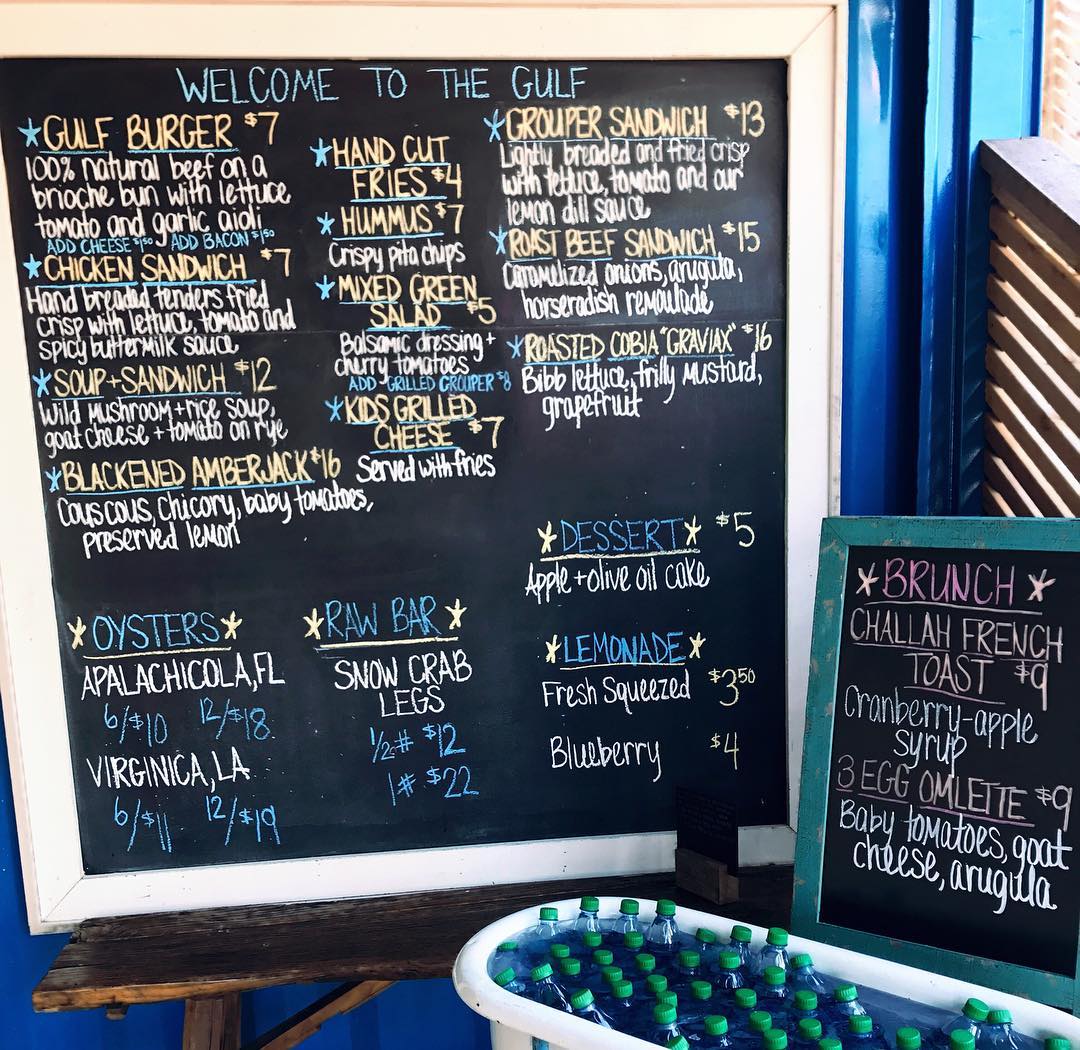 WELCOME TO THE GULF
GULF BURGER $7
100% natural beef on a
brioche bun with lettuce
tomato and garlic aioli
ADD CHEESE $1.50 ADD BACON $1.50
CHICKEN SANDWICH $7
Hand breaded tenders fried
crisp with lettuce, tomato and
spicy buttermilk sauce
SOUP + SANDWICH $12
Wild mushroom + rice soup,
goat cheese + tomato on rye
BLACKENED AMBERJACK $16
Couscous, chicory, baby tomatoes,
preserved lemon
HAND CUT
FRIES $4
HUMMUS $7
Crispy pita chips
MIXED GREEN
SALAD $5
Balsamic dressing +
cherry tomatoes
ADD GRILLED GROUPER $8
KIDS GRILLED
CHEESE $7
Served with fries
GROUPER SANDWICH $13
Lightly breaded and fried crisp
with lettuce, tomato and our
lemon dill sauce
ROAST BEEF SANDWICH $15
Caramelized onions, arugula,
horseradish remoulade
ROASTED COBIA "GRAVIAX" $16
Bibb lettuce, frilly mustard,
grapefruit
OYSTERS
APALACHICOLA, FL
6/$10 12/$18
VIRGINICA, LA
6/$11 12/$19
RAW BAR
SNOW CRAB
LEGS
1/2# $12
1# $22
DESSERT $5
Apple + olive oil cake
LEMONADE
Fresh Squeezed $3 50
Blueberry $4
BRUNCH
CHALLAH FRENCH
TOAST $9
Cranberry-apple
syrup
3 EGG OMLETTE $9
Baby tomatoes, goat
cheese, arugula